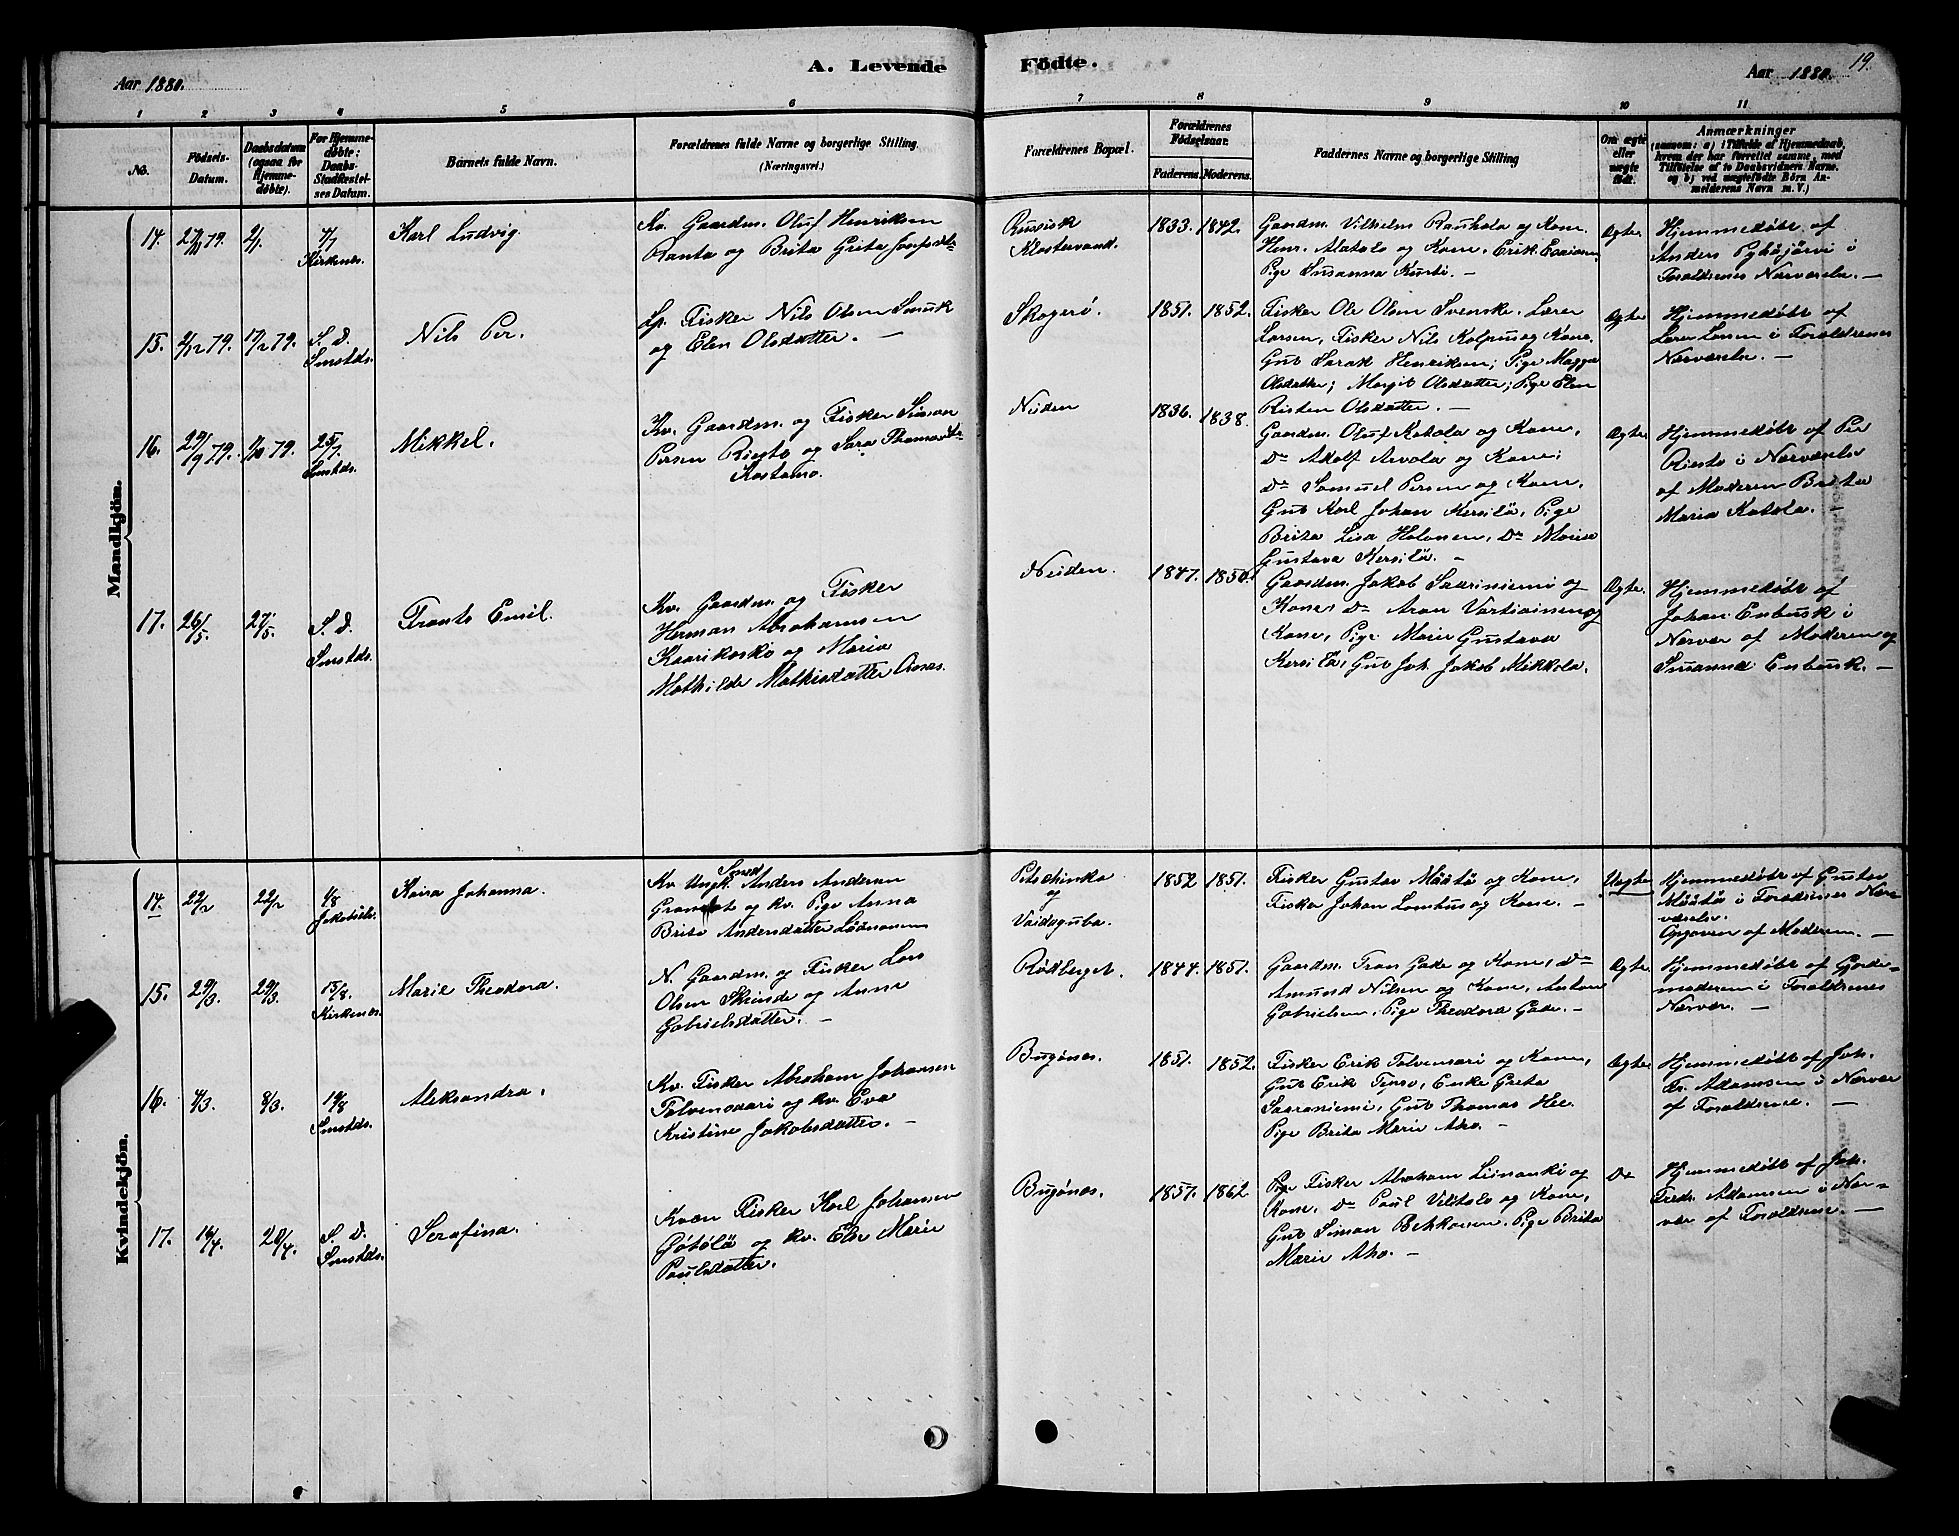 Aar 1880.
A. Levende
Födte.
Aar 1880.
19.
1 2 3 4 5 6 7 8 9 10 11
No.
Födsels-
Datum.
Daabsdatum
(ogsaa for
Hjemme-
døbte).
For Hjemme-
døbte:
Daabs-
Stadfæstel-
ses Datum.
Barnets fulde Navn.
Forældrenes fulde Navne og borgerlige Stilling
(Næringsvei.)
Forældrenes Bopæl.
Forældrenes
Fødselsaar.
Faderens. Moderens.
Faddernes Navne og borgerlige Stilling
Om ægte
eller
uægte
født.
Anmærkninger
(saasom: a) i Tilfælde af Hjemmedaab,
hvem der har forrettet samme, med
Tilföielse af to Daabsvidners Navne.
og b) ved uægtefödte Börn An-
melderens Navn m. V.)
Mandkjön.
14.
2/1.
4/7
Kirkenes.
Karl Ludvig.
Kv. Gaardm. Oluf Henriksen
Ranta og Brita Greta Josefsdtr
Russisk
Klostervand.
1833. 1842.
Gaardm. Vilhelm Rauhala og Kone.
Henr. Alatalo og Kone, Erik Esaiasen,
Pige Susanna Kurti. —
Ægte.
Hjemmedøbt af
Anders Pyhäjärvi i
Forældrenes Nærværelse. —
15.
2/12 79.
17/12 79.
S. D.
Smstds.
Nils Per.
Lp. Fisker Nils Olsen Smuk
og Elen Olsdatter. —
Skogerø.
1851. 1852.
Fisker Ole Olsen Svenske. Lærer
Larsen, Fisker Nils Kolpus og Kone,
Gut Sarak Henriksen; Pige Magga
Olsdatter; Margit Olsdatter; Pige Elen
Risten Olsdatter. —
Ægte
Hjemmedøbt af
Lærer Larsen i Forældrenes
Nærværelse. —
16.
29/9 79.
79.
25/7
Smstds.
Mikkel.
Kv. Gaardm. og Fisker Simon
Persen Riesto og Sara Thomasdtr
Kostamo.
Neiden
1836. 1838.
Gaardm. Oluf Katola og Kone,
Do Adolf Arvola og Kone;
Do Samuel Persen og Kone,
Gut Karl Johan Kersilö, Pige
Brita Lisa Halonen, Do Maria
Gustava Kersilö. —
Ægte
Hjemmedøbt af Per
Riesto i Nærværelse
af Moderen Brita
Maria Katola. —
17.
26/5.
27/5.
S. D.
Smstds.
Frants Emil.
Kv. Gaardm. og Fisker
Herman Abrahamsen
Kaarikoski og Maria
Mathilde Mathisdatter
Neiden.
1847. 1850.
Gaardm. Jakob Saariniemi og
Kone, Do Aron Vartiainen og
Kone, Pige Marie Gustava
Kersilö, Gut Joh. Jakob Mikkola.
Ægte.
Hjemmedøbt af
Johan Enbusk i
Nærvær af Moderen og
Susanna Enbusk. —
Kvindekjön.
14.
22/2
22/2
1/8
Kaisa Johanna.
Kv. Ungk. Smed Anders Andersen
og kv. Pige Anna
Brita Andersdatter
Petschinka
og
Vaidaguba.
1852 1851.
Fisker Gustav Määttö og Kone,
Fisker Johan Lomtus og Kone. —
Uægte
Hjemmedøbt af Gustav
Määttö i Forældrenes Nær-
værelse.
Opgaven af Moderen. —
15.
29/3.
29/3.
15/8.
Kirkenes.
Marie Theodora.
N. Gaardm. og Fisker Lars
Olsen og Anne
Gabrielsdatter. —
Rødberget.
1844. 1851.
Gaardm. Tran Gade og Kone, Do
Amund Nilsen og Kone, Anton
Gabrielsen, Pige Theodora Gade. —
Ægte
Hjemmedøbt af Gjorde-
moderen i Forældrenes
Nærvær. —
16.
4/3.
8/3.
19/8
Smstds.
Aleksandra.
Kv. Fisker Abraham Johansen
Talvensaari og kv. Eva
Kristine Jakobsdatter. —
Bugønes.
1851. 1852.
Fisker Erik Talvensari og Kone,
Gut Erik Enke Greta
Saaraniemi, Gut Thomas
Pige Brita Marie Aho. —
Ægte
Hjemmedøbt af Joh.
Fr. Adamsen i Nærvær
af Forældrene. —
17.
19/4.
20/4.
S. D.
Smstds.
Serafina.
Kvæn Fisker Karl Johansen
og kv. Else Marie
Paulsdatter.
Bugønes.
1857. 1862
Fisker Abraham Liinanki og
Kone, Do Paul og Kone,
Gut Simon Pekkonen, Pige Brita
Marie Aho. —
Do
Hjemmedøbt af Joh.
Fredr. Adamsen i Nær-
vær af Forældrene. —